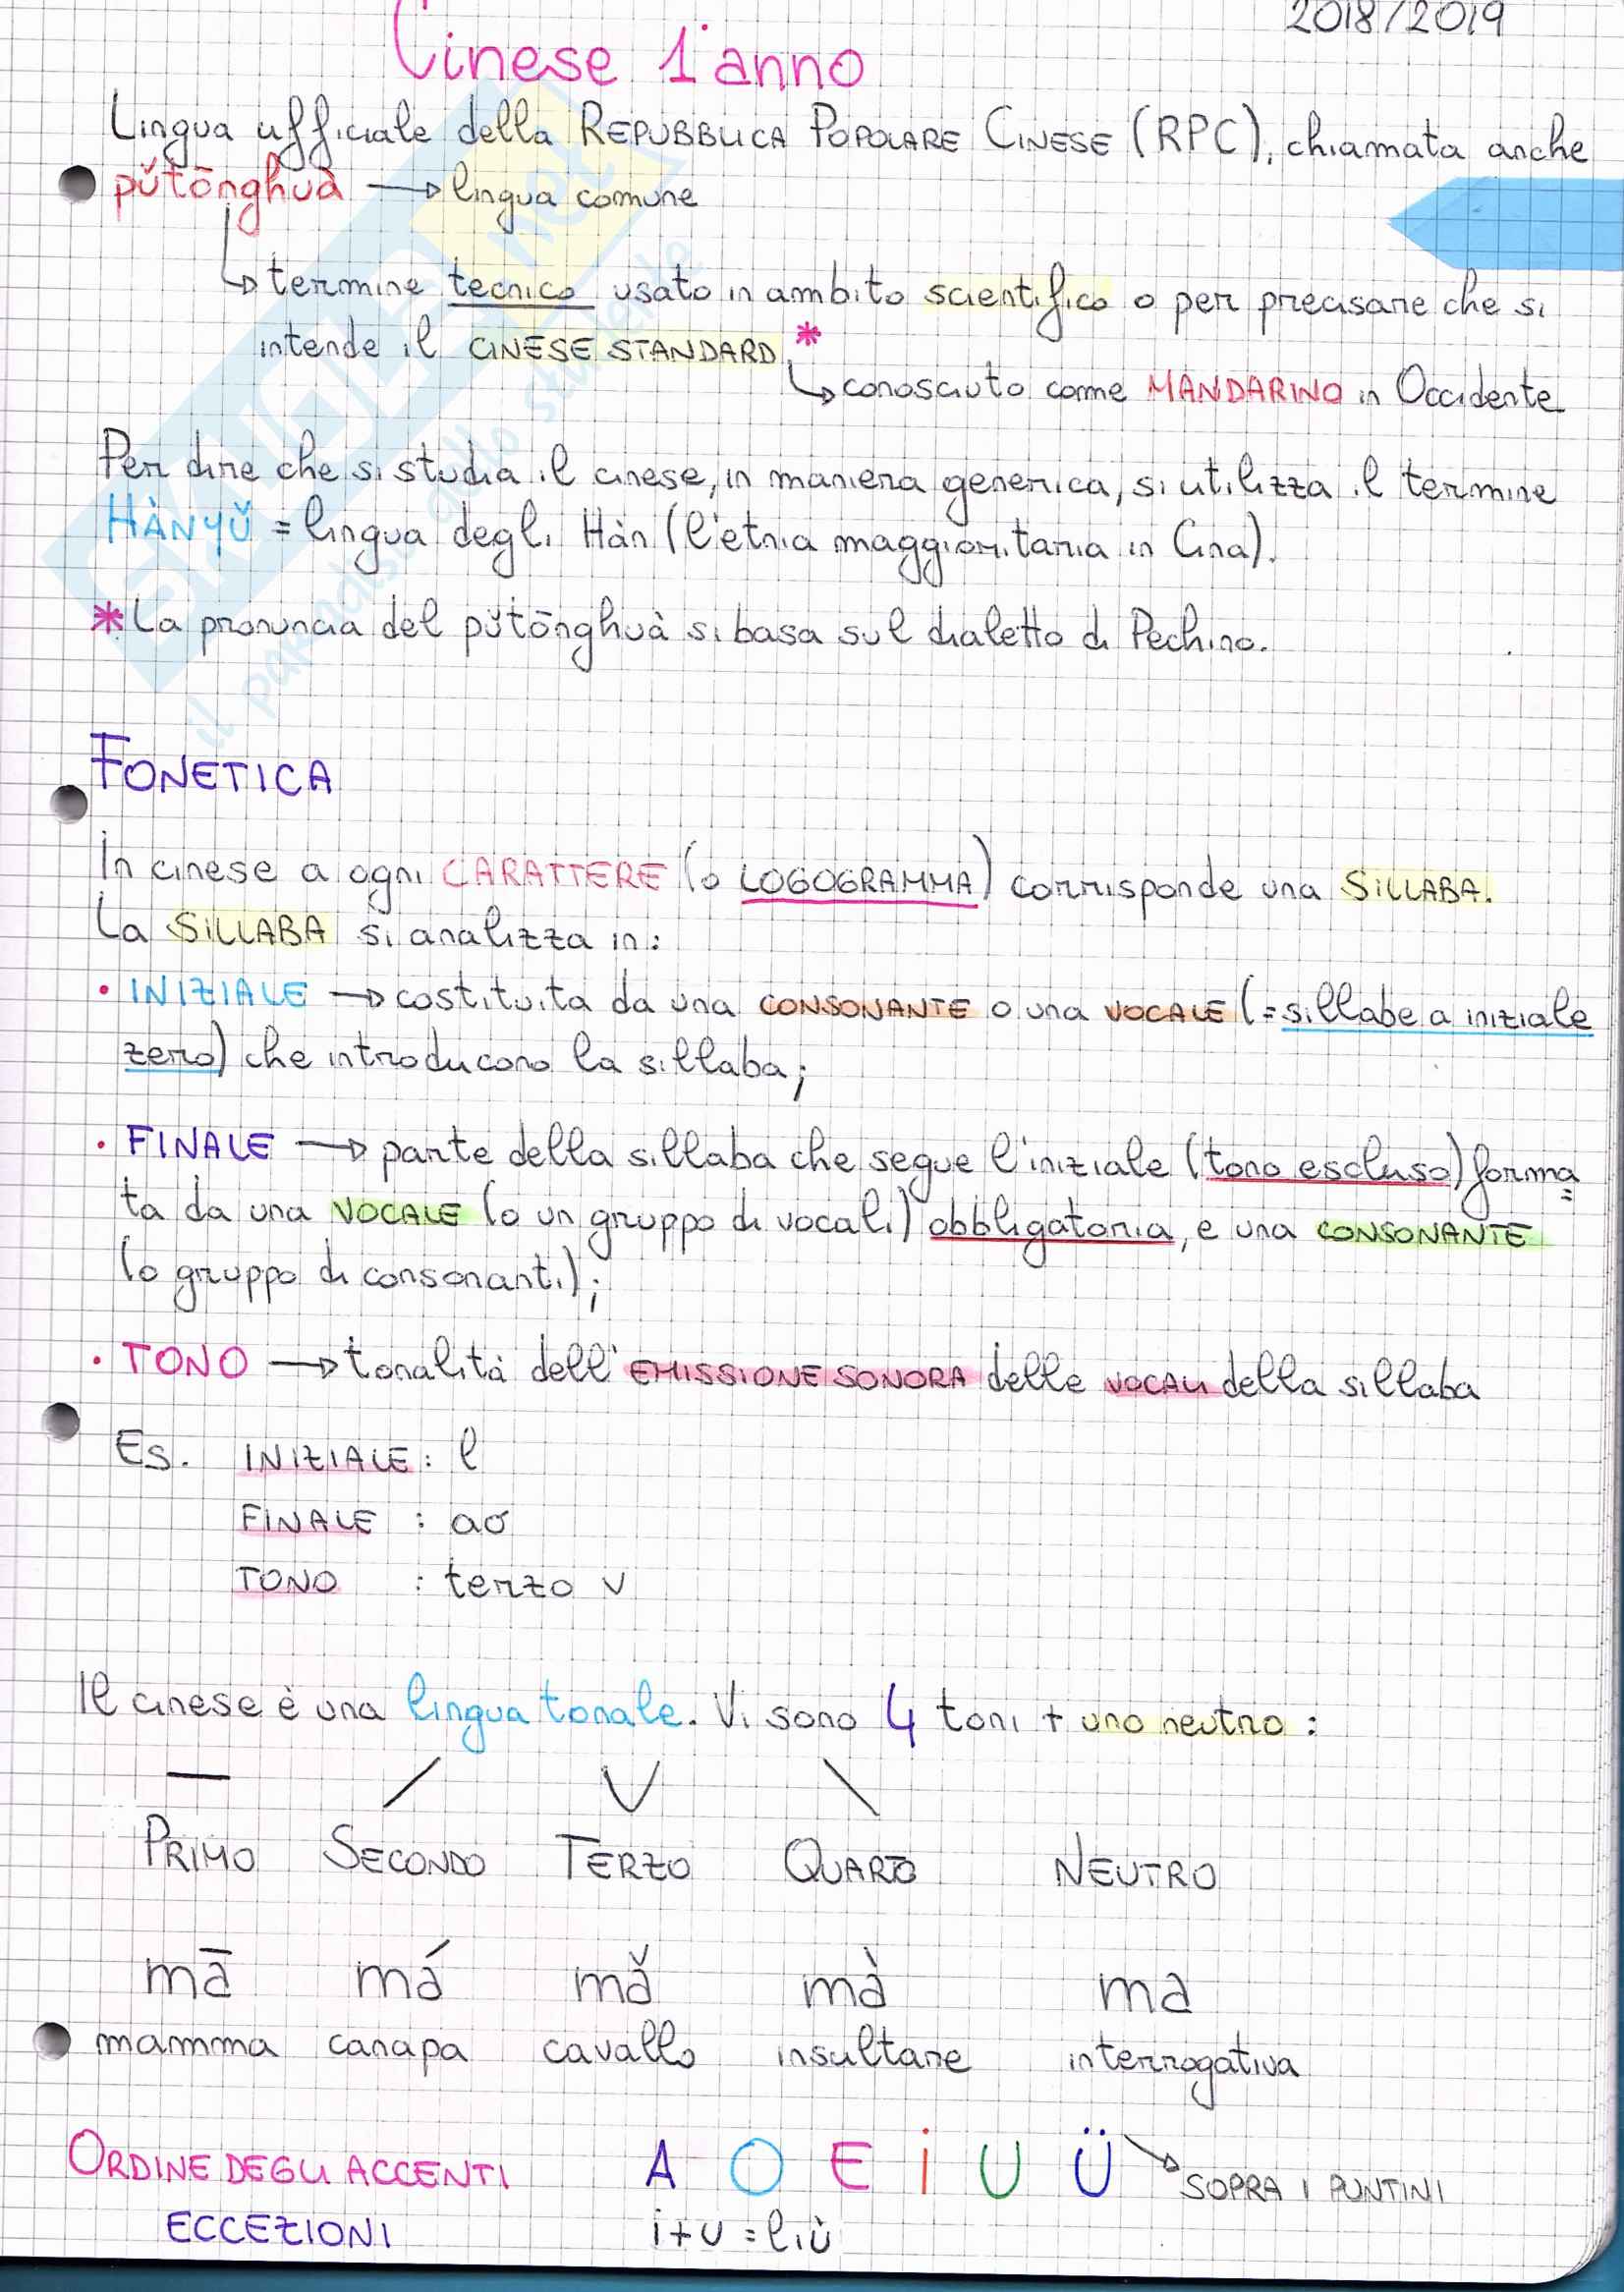 2018/2019
Cinese 1° anno
Lingua ufficiale della REPUBBLICA POPOLARE CINESE (RPC), chiamata anche
pǔtōnghuà → lingua comune
↳ termine tecnico usato in ambito scientifico o per precisare che si
intende il CINESE STANDARD *
↳ conosciuto come MANDARINO in Occidente
Per dire che si studia il cinese, in maniera generica, si utilizza il termine
HÀNYǓ = lingua degli Hàn (l'etnia maggioritaria in Cina).
* La pronuncia del pǔtōnghuà si basa sul dialetto di Pechino.
FONETICA
In cinese a ogni CARATTERE (o LOGOGRAMMA) corrisponde una SILLABA.
La SILLABA si analizza in:
• INIZIALE → costituita da una CONSONANTE o una VOCALE (= sillabe a iniziale
zero) che introducono la sillaba;
• FINALE → parte della sillaba che segue l'iniziale (tono escluso) forma=
ta da una VOCALE (o un gruppo di vocali) obbligatoria, e una CONSONANTE
(o gruppo di consonanti);
• TONO → tonalità dell'EMISSIONE SONORA delle VOCALI della sillaba
Es. INIZIALE: l
FINALE : ao
TONO : terzo ∨
Il cinese è una lingua tonale. Vi sono 4 toni + uno neutro :
— / ∨ \
PRIMO SECONDO TERZO QUARTO NEUTRO
mā má mǎ mà ma
mamma canapa cavallo insultare interrogativa
ORDINE DEGLI ACCENTI A O E i U Ü → SOPRA I PUNTINI
ECCEZIONI i+u = liù
SKUOLA.net
il paradiso dello studente